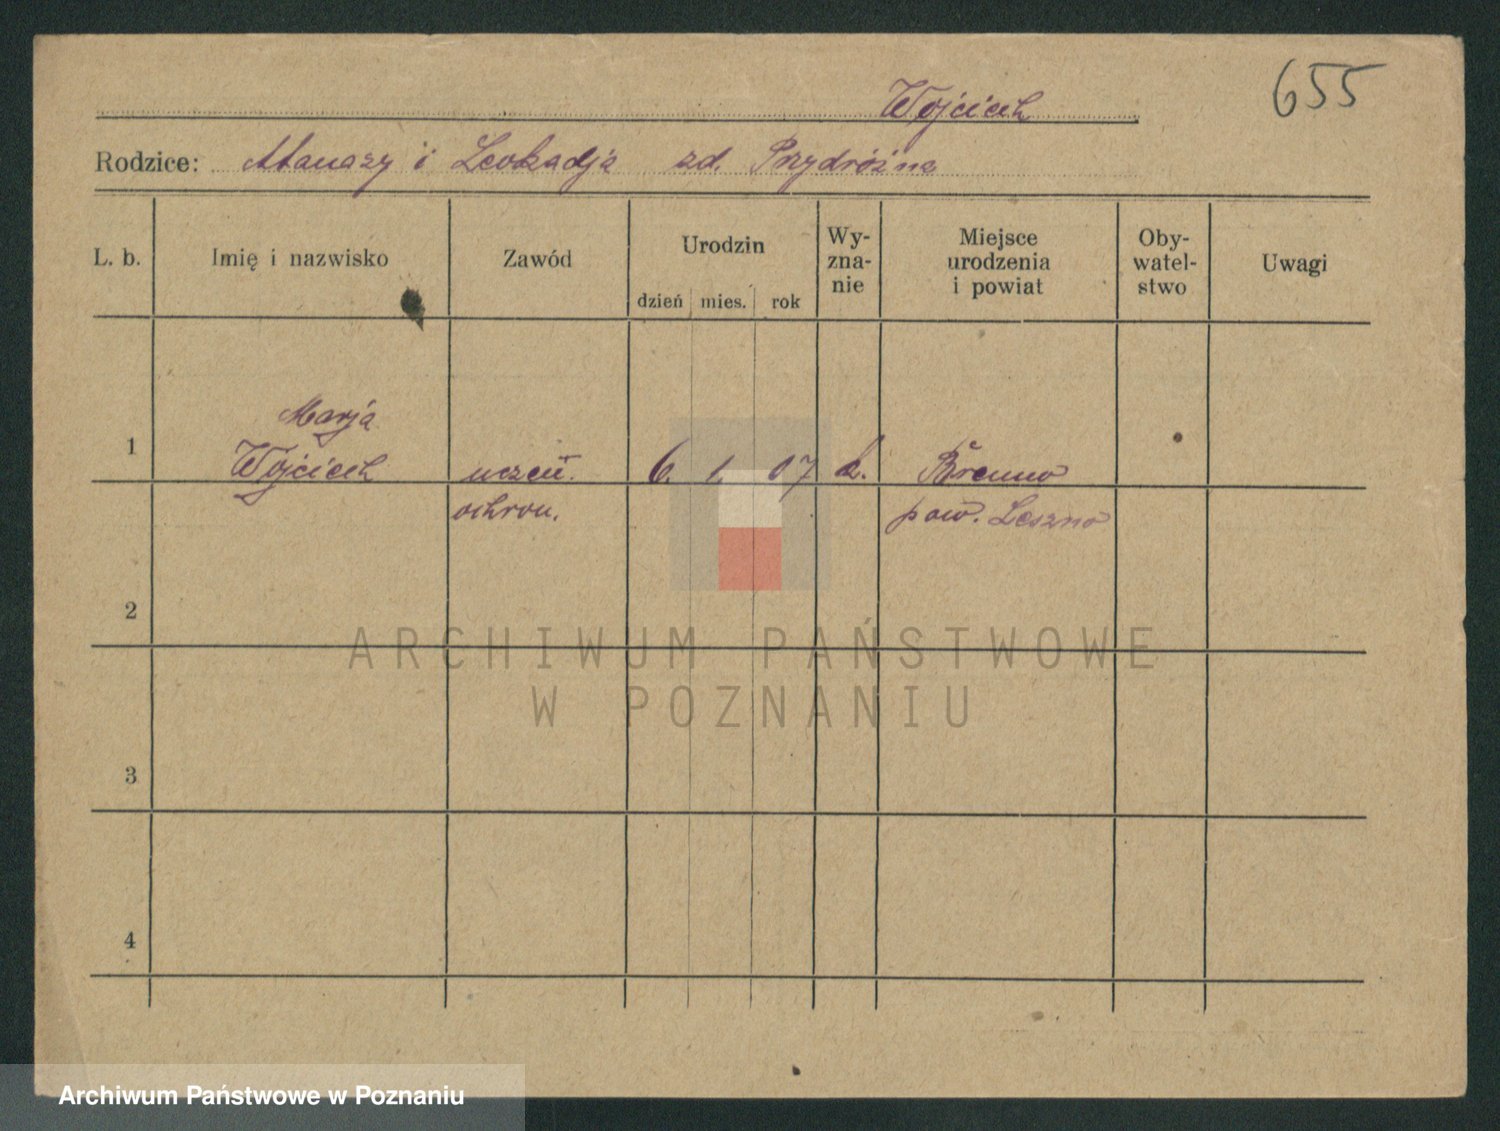 655
Wojciech
Rodzice: Atanazy i Leokadja zd. Przydróżna
L. b. Imię i nazwisko Zawód Urodzin dzień mies. rok Wy-zna-nie Miejsce urodzenia i powiat Oby-watel-stwo Uwagi
Marja
1 Wojciech uczeń. 6. 1. 07 k. Brenno
ochron. pow. Leszno
2
ARCHIWUM PAŃSTWOWE
W POZNANIU
3
4
Archiwum Państwowe w Poznaniu